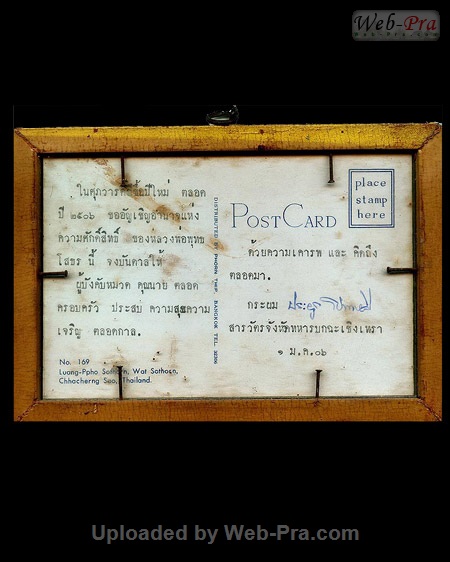 Web-Pra
Web-Pra.com
ในศุภวารดิถีขึ้นปีใหม่ ตลอด
ปี ๒๕๐๖ ขออัญเชิญอำนาจแห่ง
ความศักดิ์สิทธิ์ ของหลวงพ่อพุทธ
โสธร นี้ จงบันดาลให้
ผู้บังคับหมวด คุณนาย ตลอด
ครอบครัว ประสบ ความสุขความ
เจริญ ตลอดกาล.
No. 169
Luang-Ppho Sothorn, Wat Sothorn,
Chhacherng Sao, Thailand.
DISTRIBUTED BY PHORN THIP, BANGKOK TEL.
POSTCARD
place
stamp
here
ด้วยความเคารพ และ คิดถึง
ตลอดมา.
กระผม
สารวัตรจังหวัดทหารบกฉะเชิงเทรา
๑ ม.ค.๐๖
Uploaded by Web-Pra.com